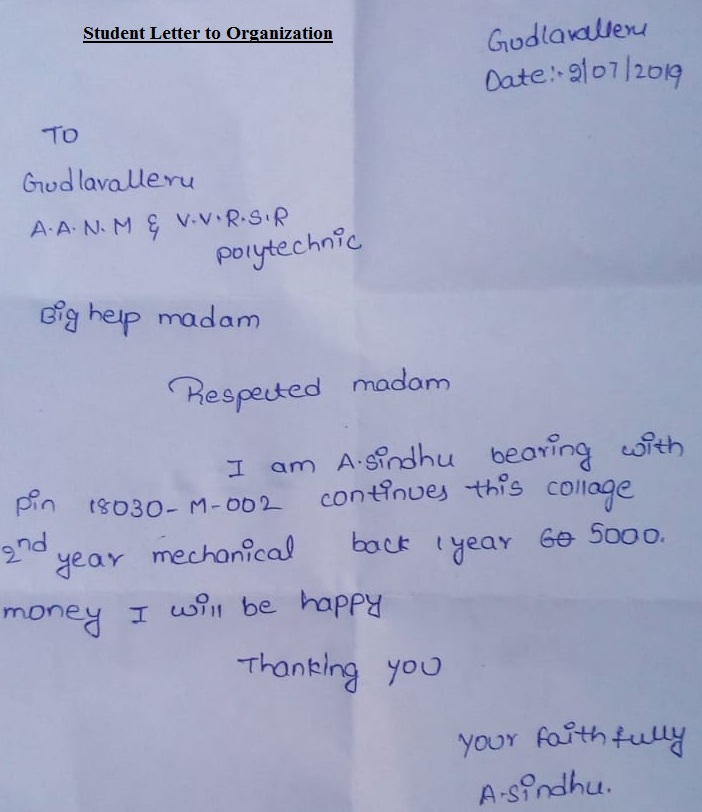 Student Letter to Organization
Gudlavalleru
Date:- 2/07/2019
TO
Gudlavalleru
A.A.N.M & V.V.R.S.R
polytechnic
Big help madam
Respected madam
I am A.sindhu bearing with
pin 18030-M-002 continues this collage
2nd year mechanical back 1 year 5000.
money I will be happy
Thanking you
your faithfully
A.sindhu.